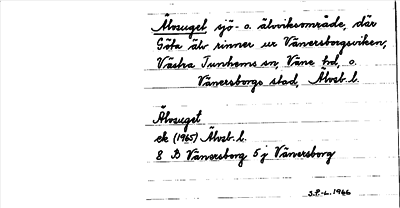 Älvsuget sjö- o. älvviksområde, där
Göta älv rinner ur Vänersborgsviken,
Västra Tunhems sn, Väne hd, o.
Vänersborgs stad, Älvsb. l.
Älvsuget
ek (1965) Älvsb. l.
8 B Vänersborg 5 j Vänersborg
S.P.-L. 1966